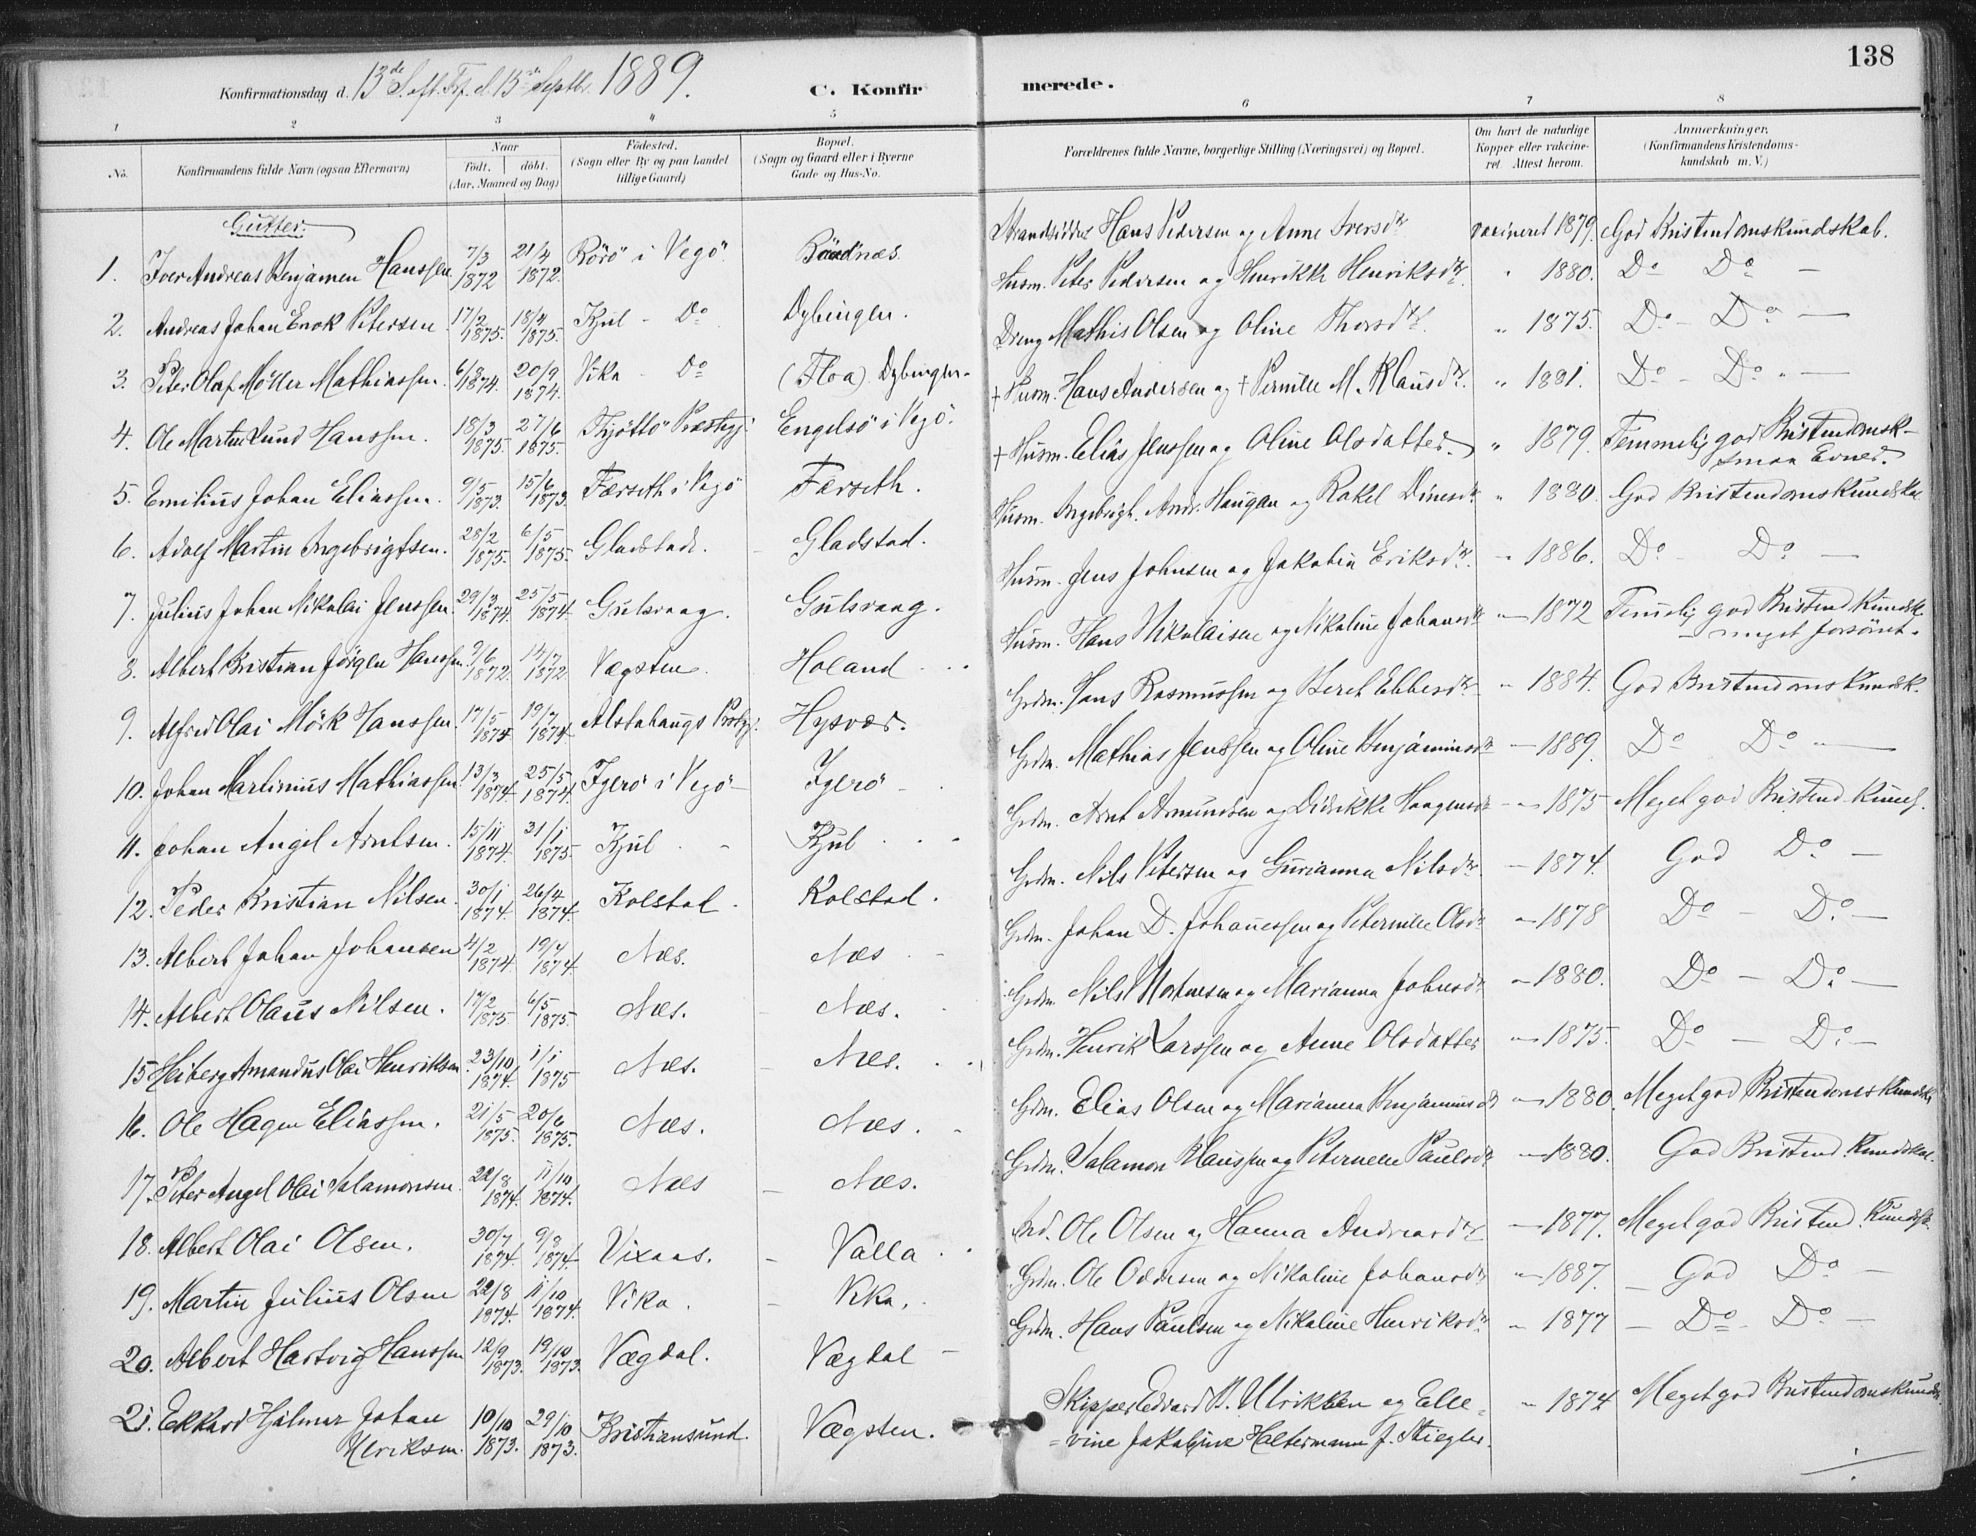 138
Konfirmationsdag d. 13de Sept. 15de Septbr. 1889.
C. Konfirmerede.
1 2 3 4 5 6 7 8
No.
Konfirmandens fulde Navn (ogsaa Efternavn)
Naar
Födt. döbt.
(Aar, Maaned og Dag)
Födested.
(Sogn eller By og paa Landet
tillige Gaard)
Bopæl.
(Sogn og Gaard eller i Byerne
Gade og Hus-No.
Forældrenes fulde Navne, borgerlige Stilling (Næringsvei) og Bopæl.
Om havt de naturlige
Kopper eller vakcine-
ret. Attest herom.
Anmærkninger.
(Konfirmandens Kristendoms-
kundskab m. V.)
Gutter.
1. Iver Andreas Benjamen Hanssen 7/3 1872 21/4 1872. Rörö i Vegö Hans Pedersen og Anne Iversdtr vaccineret 1879. God Kristendomskundskab.
2. Andreas Johan Enok Petersen 17/2 1875. 18/4 1875. Kjul - Do Dybingen. Husm. Peter Pedersen og Henrikke Henriksdtr. " 1880. Do Do —
3. Peter Olaf Möller Mathiassen 6/8 1874. 20/9 1874. Vika - Do (Floa) Dybingen. Dreng Mathis Olsen og Oline Thorsdtr. " 1875. Do - Do —
4. Ole Martin Lund Hanssen. 18/3 1875. 27/6 1875. Tjöttö Præstegj. Engelsö i Vegö. + Husm. Hans Andersen og + Pernille M. Klausdtr. " 1881. Do - Do —
5. Emilius Johan Eliassen. 9/5 1873. 15/6 1873. Færseth i Vegö Færseth. + Husm. Elias Jenssen og Oline Olsdatter. " 1879. Temmelig god Kristendomsk-
smaa Evner.
6. Adolf Martin Ingebrigtsen. 28/2 1875. 6/5 1875. Gladstad. Gladstad. Husm. Ingebrigt. Andr. Haugan og Rakel Dinesdtr " 1880. God Kristendomskundskab
7. Julius Johan Nikolai Jenssen. 29/3 1874. 25/5 1874. Gulsvaag. Gulsvaag. Husm. Jens Johnsen og Jakobin Eriksdtr. " 1886. Do - Do —
8. Albert Kristian Jörgen Hanssen 9/6 1872. 14/7 1872 Vægsten. Holand Husm. Hans Nikolaisen og Nikoline Johansdtr " 1872 Temmelig god Kristend. Kundsk.
meget forsömt.
9. Alfred Olai Mörk Hanssen. 17/5 1874 19/7 1874 Alstahaugs Prstgj. Hysvær. Grdm. Hans Rasmussen og Beret Ebbesdtr " 1884. God Kristendomskundsk.
10. Johan Martinius Mathiassen 13/3 1874 25/5 1874. Igerö i Vegö Igerö Grdm. Mathias Jenssen og Oline Benjaminsdtr — 1889. Do Do —
11. Johan Angel Arntsen. 15/11 1874. 31/1 1875. Kjul Kjul Grdm. Arnt Amundsen og Didrikke Haagensdtr — 1875 Meget god Kristend. Kundsk.
12. Peder Kristian Nilsen. 30/1 1874. 26/4 1874. Kolstad. Kolstad. Grdm. Nils Petersen og Gurianna Nilsdtr — 1874. God Do —
13. Albert Johan Johansen 4/2 1874. 19/4 1874. Næs. Næs Grdm. Johan D. Johannessen og Peternille Olsdtr " 1878 Do - Do. —
14. Albert Olaus Nilsen. 17/2 1875. 6/5 1875. Næs. Næs. Grdm. Nils Mortensen og Marianna Johnsdtr " 1880. Do — Do. —
15. Heiberg Amandus Olai Henriksen. 23/10 1874. 1/1 1875 Næs. Næs. Grdm. Henrik Larssen og Anne Olsdatter " 1875. Do — Do. —
16. Ole Hagen Eliassen. 21/5 1875. 20/6 1875. Næs. Næs. Grdm. Elias Olsen og Marianna Benjaminsd " 1880. Meget god Kristendomskundsk
17. Peter Angel Olai Salamonsen. 22/8 1874. 11/10 1874. Næs — Næs. Grdm. Salamon Klaussen og Peternelle Paulsdtr — 1880. God Kristend. Kundskab.
18. Albert Olai Olsen. 30/7 1874. 9/8 1874 Vixaas. — Valla Ind. Ole Olsen og Hanna Andreasdtr — 1877. Meget god Kristend. Kundsk.
19. Martin Julius Olsen 22/8 1874. 11/10 1874. Vika. — Vika. Grdm. Ole Odersen og Nikoline Johansdtr " 1887. — God Do —
20. Albert Hartvig Hanssen 12/9 1873. 19/10 1873. Vægdal. Vægdal — Grdm. Hans Paulsen og Nikoline Henriksdtr. " 1877 — Do - Do —
21. Ekkard Hjalmar Johan
Ulriksen. 10/10 1873. 29/10 1873. Kristiansund. Vægsten. Skipper Edvard B. Ulriksen og Elle-
vine Jakobine Holtermann f. Stiegler. " 1874 Meget god Kristendomskundsk